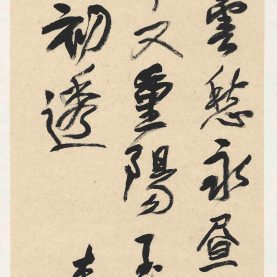 雲愁永昼
又重陽玉
初透